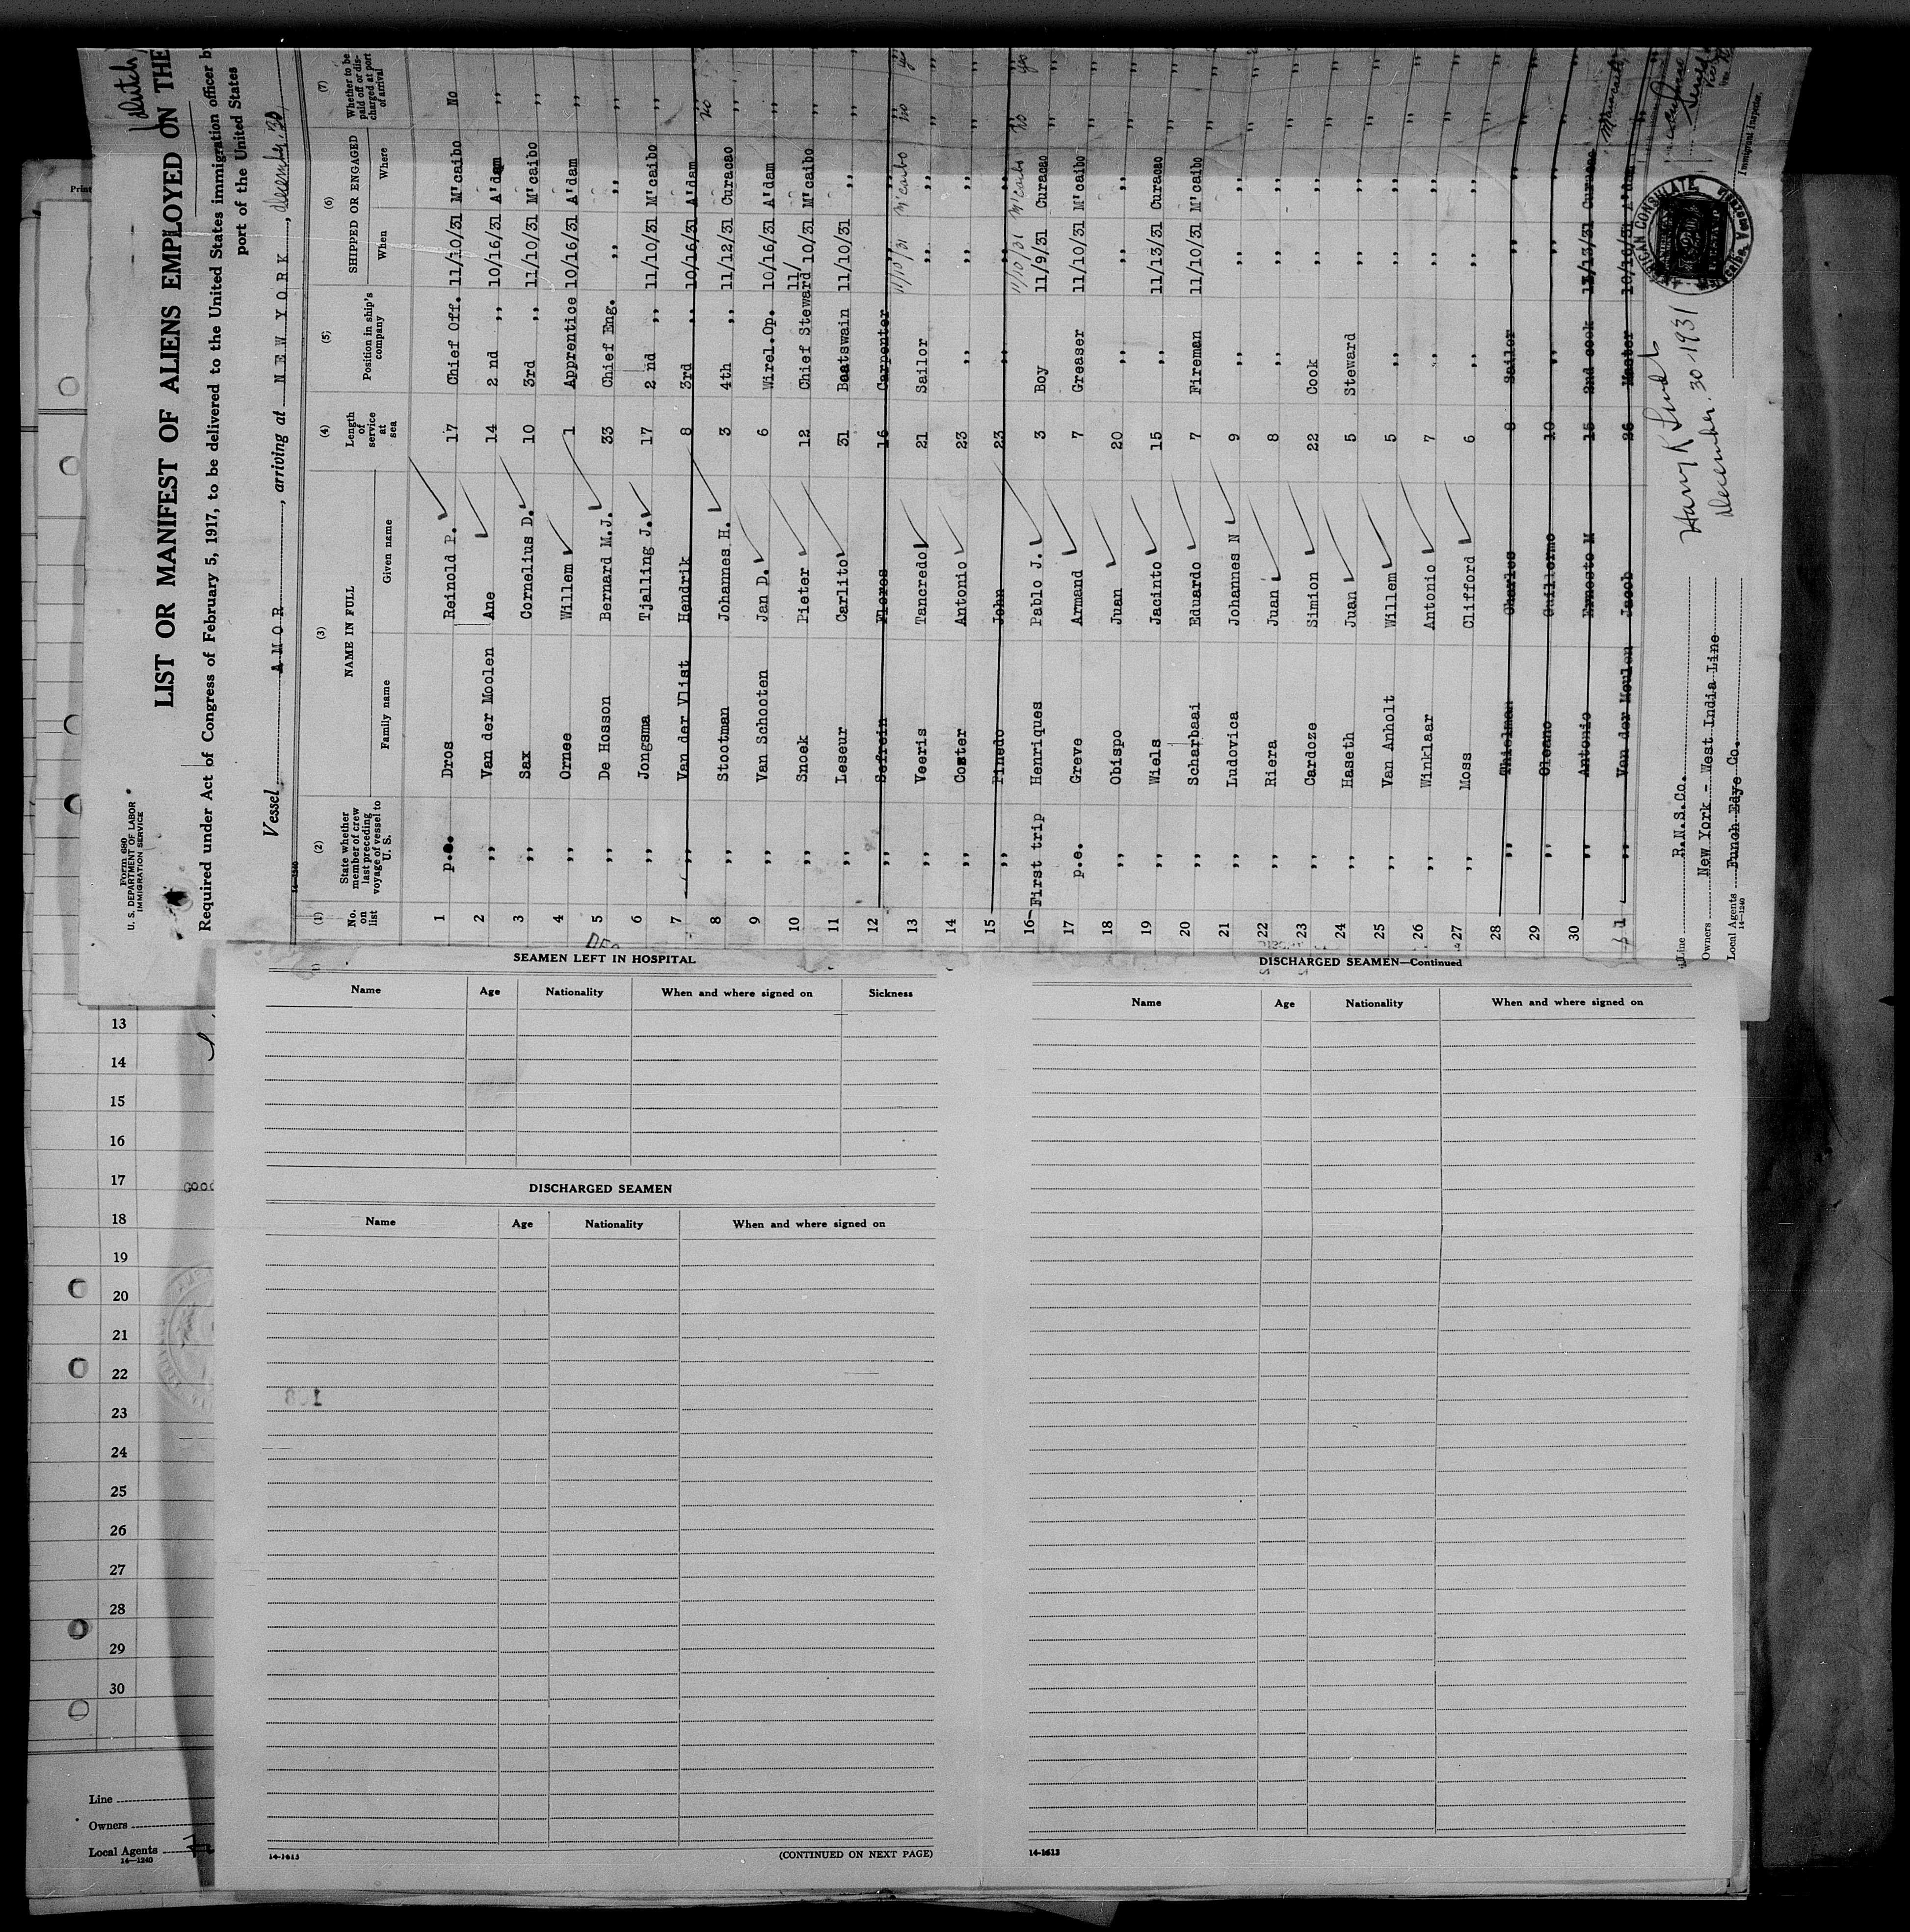 Form 680
U. S. DEPARTMENT OF LABOR
IMMIGRATION SERVICE
LIST OR MANIFEST OF ALIENS EMPLOYED ON THE
Required under Act of Congress of February 5, 1917, to be delivered to the United States immigration officer by
port of the United States
Vessel AMOR, arriving at NEW YORK, December 30,
14-1240
(1) (2) (3) (4) (5) (6) (7)
No. on list
State whether member of crew last preceding voyage of vessel to U. S.
NAME IN FULL
Family name Given name
Length of service at sea
Position in ship's company
SHIPPED OR ENGAGED
When Where
Whether to be paid off or discharged at port of arrival
1 p.e. Dros Reinold P. 17 Chief Off. 11/10/31 M'caibo No
2 ,, Van der Moolen Ane 14 2 nd ,, 10/16/31 A'dam ,,
3 ,, Sax Cornelius D. 10 3rd ,, 11/10/31 M'caibo ,,
4 ,, Ornee Willem 1 Apprentice 10/16/31 A'dam ,,
5 ,, De Hosson Bernard M.J. 33 Chief Eng. ,, ,, ,,
6 ,, Jongsma Tjalling J. 17 2 nd ,, 11/10/31 M'caibo ,,
7 ,, Van der Vlist Hendrik 8 3rd ,, 10/16/31 A'dam ,,
8 ,, Stootman Johannes H. 3 4th ,, 11/12/31 Curacao no ,,
9 ,, Van Schooten Jan D. 6 Wirel.Op. 10/16/31 A'dam ,,
10 ,, Snoek Pieter 12 Chief Steward 11/10/31 M'caibo ,,
11 ,, Leseur Carlito 31 Boatswain 11/10/31 ,, ,,
12 ,, Sefrein Flores 16 Carpenter ,, ,,
13 ,, Veeris Tancredo 21 Sailor 11/10/31 M'caibo no ,, ,, ,,
14 ,, Coster Antonio 23 ,, ,, ,, ,,
15 ,, Pinedo John 23 ,, ,, ,, ,,
16 First trip Henriques Pablo J. 3 Boy 11/10/31 M'caibo no 11/9/31 Curacao
17 p.e. Greve Armand 7 Greaser 11/10/31 M'caibo ,,
18 ,, Obispo Juan 20 ,, ,, ,, ,,
19 ,, Wiels Jacinto 15 ,, 11/13/31 Curacao ,,
20 ,, Scharbaai Eduardo 7 Fireman 11/10/31 M'caibo ,,
21 ,, Ludovica Johannes N 9 ,, ,, ,, ,,
22 ,, Riera Juan 8 ,, ,, ,, ,,
23 ,, Cardoze Simion 22 Cook ,, ,, ,,
24 ,, Haseth Juan 5 Steward ,, ,, ,,
25 ,, Van Anholt Willem 5 ,, ,, ,, ,,
26 ,, Winklaar Antonio 7 ,, ,, ,, ,,
27 ,, Moss Clifford 6 ,, ,, ,, ,,
28 ,, Thielman Charles 8 Sailor ,, ,, ,,
29 ,, Oleano Guillermo 10 ,, ,, ,, ,,
30 ,, Antonio Ernesto M 15 2nd cook 11/13/31 Curacao ,,
,, Van der Meulen Jacob 26 Master 10/16/31 A'dam
Line R.N.S.Co.
Owners New York - West India Line
Local Agents Funch Edye Co.
14-1240
December 30 1931
AMERICAN CONSULATE
Immigrant Inspector.
Print
SEAMEN LEFT IN HOSPITAL
Name Age Nationality When and where signed on Sickness
DISCHARGED SEAMEN
Name Age Nationality When and where signed on
14-1613
(CONTINUED ON NEXT PAGE)
DISCHARGED SEAMEN—Continued
Name Age Nationality When and where signed on
14-1613
13
14
15
16
17
18
19
20
21
22
23
24
25
26
27
28
29
30
Line
Owners
Local Agents
14-1240